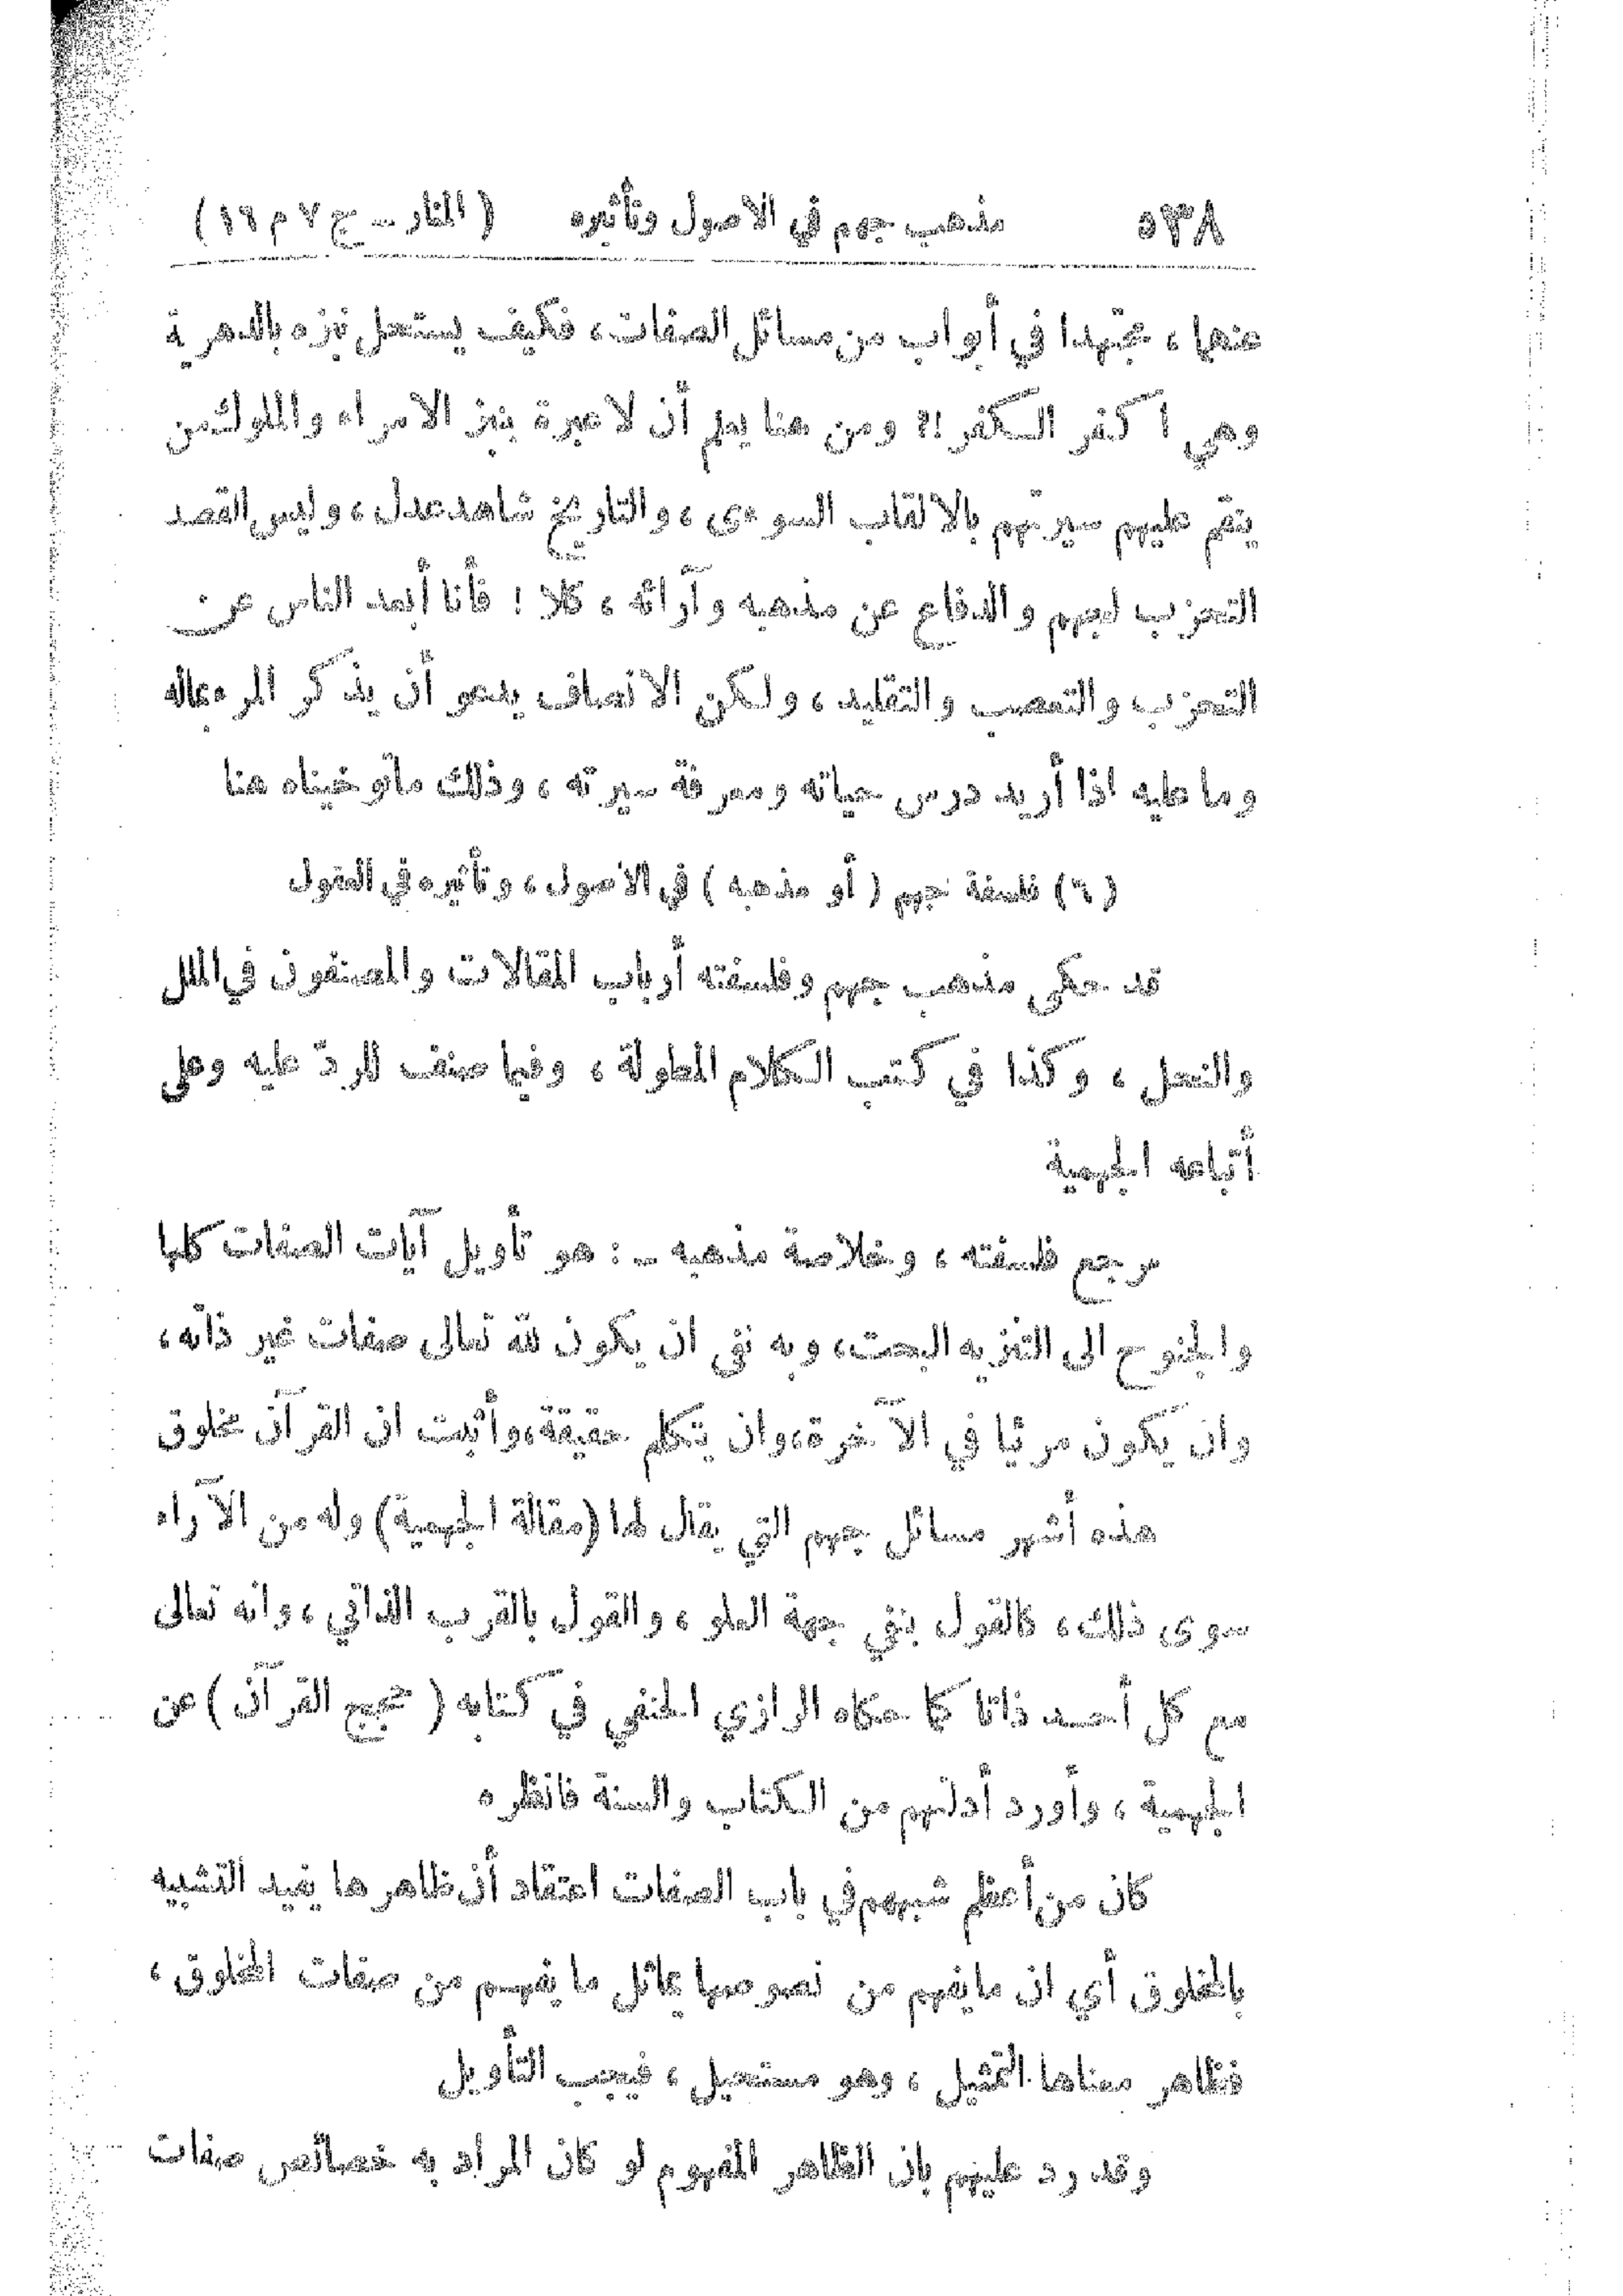 ٥٣٨ مذهب جهم في الاصول وتأثيره ( المنار ــ ج ٧ م ١٦ )
عنها ، مجتهدا في أبواب من مسائل الصفات ، فكيف يستحل نبزه بالدهرية
وهي أكفر الكفر !؟ ومن هنا يعلم أن لا عبرة بنبز الامراء والملوك من
ينقم عليهم سيرتهم بالالقاب السوءى ، والتاريخ شاهد عدل ، وليس القصد
التحزب لجهم والدفاع عن مذهبه وآرائه ، كلا ! فأنا أبعد الناس عن
التحزب والتعصب والتقليد ، ولكن الانصاف يدعو أن يذكر المرء بماله
وما عليه اذا أريد درس حياته ومعرفة سيرته ، وذلك ماتوخيناه هنا
(٦) فلسفة جهم ( أو مذهبه ) في الاصول ، وتأثيره في العقول
قد حكى مذهب جهم وفلسفته أرباب المقالات والمصنفون في الملل
والنحل ، وكذا في كتب الكلام المطولة ، وفيما صنف للردّ عليه وعلى
أتباعه الجهمية
مرجع فلسفته ، وخلاصة مذهبه ــ : هو تأويل آيات الصفات كلها
والجنوح الى التنزيه البحت ، وبه نفى ان يكون لله تعالى صفات غير ذاته ،
وان يكون مرئيا في الآخرة ، وان يتكلم حقيقة ، وأثبت ان القرآن مخلوق
هذه أشهر مسائل جهم التي يقال لها (مقالة الجهمية) وله من الآراء
سوى ذلك ، كالقول بنفي جهة العلو ، والقول بالقرب الذاتي ، وانه تعالى
مع كل أحد ذاتا كما حكاه الرازي الحنفي في كتابه ( حجج القرآن ) عن
الجهمية ، وأورد أدلتهم من الكتاب والسنة فانظره
كان من أعظم شبههم في باب الصفات اعتقاد أن ظاهرها يفيد التشبيه
بالمخلوق أي ان مايفهم من نصوصها يماثل ما يفهم من صفات المخلوق ،
فظاهر معناها التمثيل ، وهو مستحيل ، فيجب التأويل
وقد رد عليهم بان الظاهر المفهوم لو كان المراد به خصائص صفات